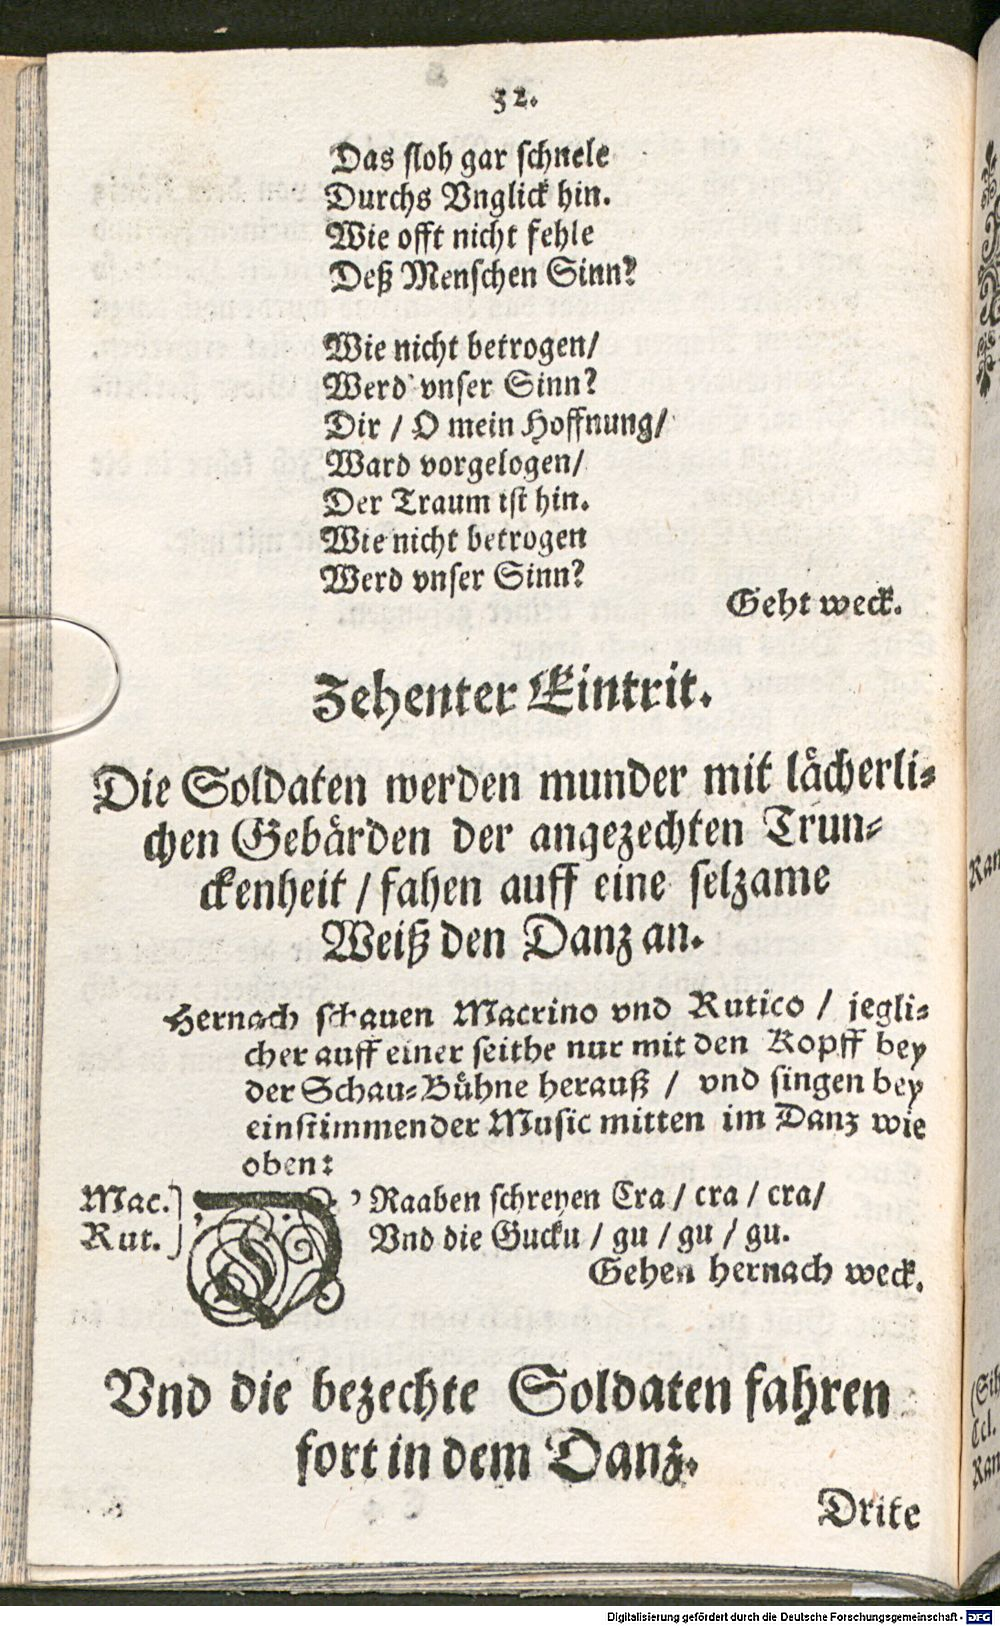 32.
Das floh gar schnele
Durchs Vnglick hin.
Wie offt nicht fehle
Deß Menschen Sinn?
Wie nicht betrogen/
Werd vnser Sinn?
Dir / O mein Hoffnung/
Ward vorgelogen/
Der Traum ist hin.
Wie nicht betrogen
Werd vnser Sinn?
Geht weck.
Zehenter Eintrit.
Die Soldaten werden munder mit lächerli-
chen Gebärden der angezechten Trun-
ckenheit / fahen auff eine selzame
Weiß den Danz an.
Hernach schauen Macrino vnd Rutico / jegli-
cher auff einer seithe nur mit den Kopff bey
der Schau-Bühne herauß / vnd singen bey
einstimmender Music mitten im Danz wie
oben:
Mac.] D' Raaben schreyen Cra / cra / cra/
Rut.] Vnd die Gucku / gu / gu / gu.
Gehen hernach weck.
Vnd die bezechte Soldaten fahren
fort in dem Danz.
Drite
Ran
(Sih
Cel.
Ran
Digitalisierung gefördert durch die Deutsche Forschungsgemeinschaft - DFG